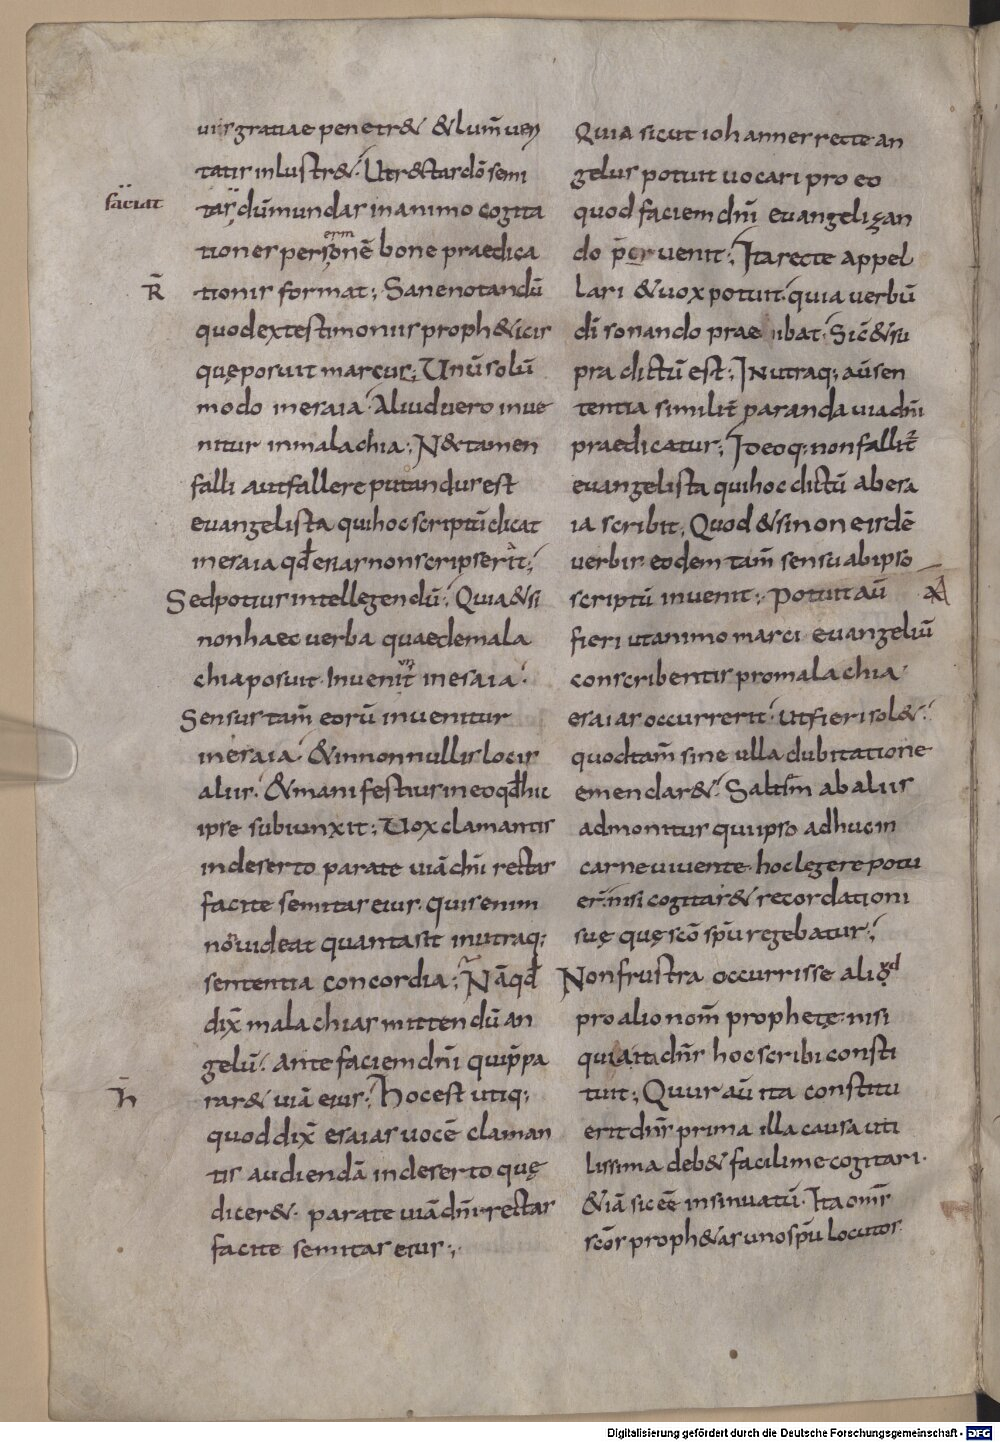 uiis gratiae penetr& & lum̄ ueri
tatis inlustr&. Ut r&stas dō semi
faciat
tas dūmundas in animo cogita
tiones per sermonē bone praedica
R̄
tionis format; Sane notandū
quod ex testimoniis proph&icis
quę posuit marcus; Unū solū
modo in esaia. Aliud uero inue
nitur in malachia; N& tamen
falli aut fallere putandus est
euangelista qui hoc scriptū dicat
in esaia qđ esaias non scripserit;
Sed potius intellegendū. Quia &si
non haec uerba quae de mala
chia posuit. Inueniūr in esaia.
Sensus tam̄ eorū inuenitur
in esaia. & in nonnullis locis
aliis. & manifestius in eo qđ hic
ipse subiunxit; Uox clamantis
in deserto parate uiā dn̄i rectas
facite semitas eius. quis enim
nō uideat quanta sit in utraq;
sententia concordia; Nāqđ
dix̄ malachias mittendū an
gelū. ante faciem dn̄i qui p̄pa
h̄
rar& uiā eius; Hoc est utiq;
quod dix̄ esaias uocē claman
tis audiendā in deserto quę
dicer&. parate uiā dn̄i rectas
facite semitas eius;
Quia sicut iohannes recte an
gelus potuit uocari pro eo
quod faciem dn̄i euangelizan
do p̄euenit; Ita recte appel
lari & uox potuit. quia uerbū
dī sonando praeibat. Sic̄ & su
pra dictū est; In utraq; aūsen
tentia similit̄ paranda uia dn̄i
praedicatur; Ideoq; non fallit̄
euangelista qui hoc dictū ab esa
ia scribit; Quod &si non eisdē
uerbis eodem tam̄ sensu ab ipso
scriptū inuenit; Potuit aū
fieri ut animo marci euangeliū
conscribentis pro malachia
esaias occurrerit. ut fieri sol&.
quod tam̄ sine ulla dubitatione
emendar&. Saltim ab aliis
admonitus qui ipso adhuc in
carne uiuente. hoc legere potu
er̄. nisi cogitar& recordationi
suę quę scō sp̄u regebatur;
Non frustra occurrisse aliqd
pro alio nom̄ prophetę. nisi
quia ita dn̄s hoc scribi consti
tuit; Quur aū ita constitu
erit dn̄s prima illa causa uti
lissima deb& facilime cogitari.
& iā sic eē insinuatū. Ita om̄s
scōs proph&as uno sp̄u locutos
Digitalisierung gefördert durch die Deutsche Forschungsgemeinschaft - DFG